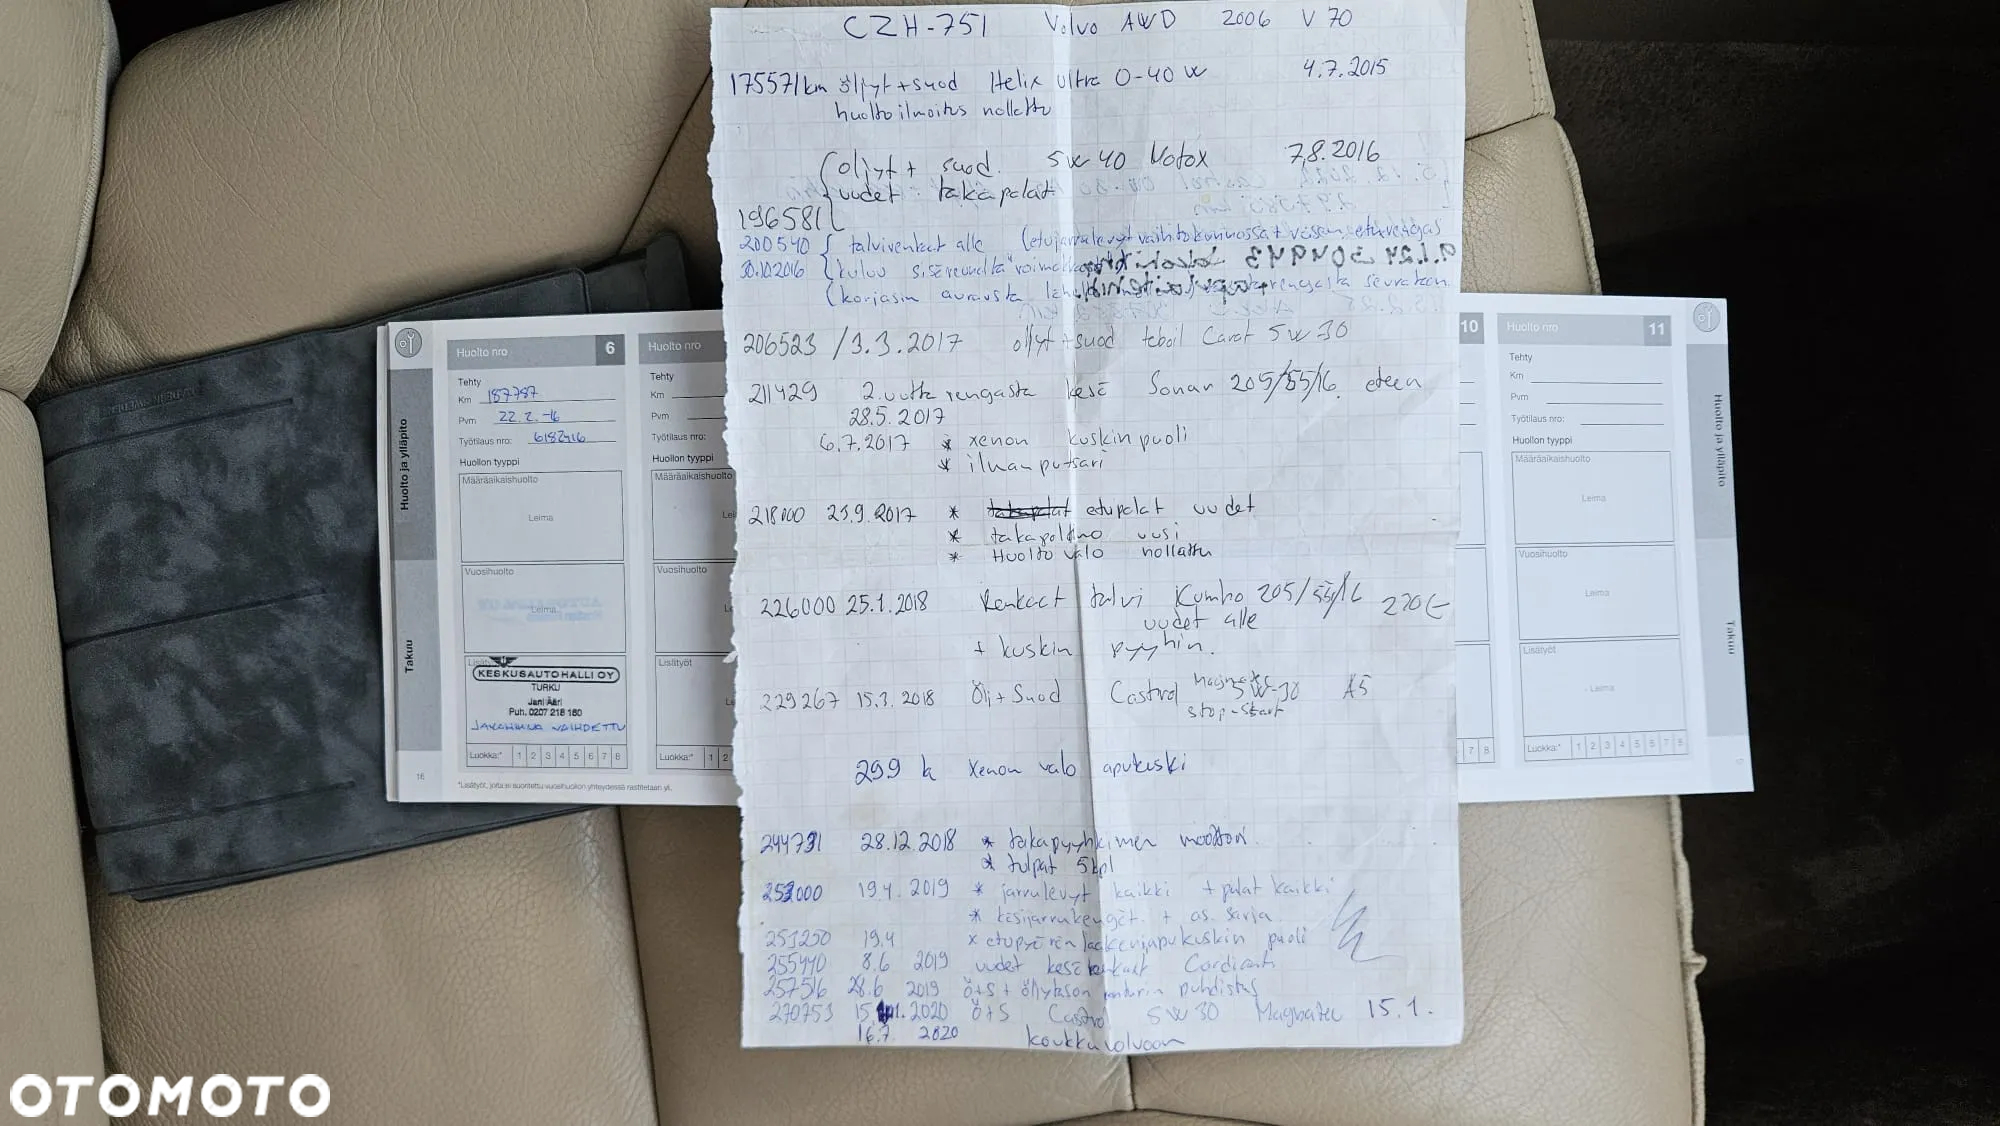 CZH-751 Volvo AWD 2006 V70
175571 km öljyt + suod Helix Ultra 0-40 W 4.7.2015
huoltoilmoitus nollattu
öljyt + suod. 5W40 Motox 7.8.2016
uudet takapalat
196581
200540 talvirenkaat alle (etujarrulevyt vaihtokunnossa +
30.10.2016 kuluu
(korjasin
206523 / 3.3.2017 öljyt + suod teboil Carat 5W30
211429 2. uutta rengasta kesä Sonar 205/55/16. eteen
28.5.2017
6.7.2017 * xenon kuskin puoli
* ilman putsari
218000 23.9.2017 * takapalat etupalat uudet
* takapolttimo uusi
* Huolto valo nollattu
226000 25.1.2018 Renkaat talvi Kumho 205/55/16 220€
uudet alle
+ kuskin pyyhin.
229267 15.3.2018 Öljt + Suod Castrol Magnatec 5W-30 A5
stop-start
299 k Xenon valo apukuski
244731 28.12.2018 * takapyyhkimen moottori
* tulpat 5kpl
252000 19.4.2019 * jarrulevyt kaikki + palat kaikki
* käsijarrukengät + as. sarja
251250 19.4 x etupyörän laakeri apukuskin puoli
255440 8.6 2019 uudet kesärenkaat Cordiant
257516 28.6 2019 Ö+S + puhdistus
270753 2020 Ö+S Castrol 5W30 Magnatec 15.1.
16.7. 2020
Huolto ja ylläpito
Takuu
Huolto nro 6
Tehty
Km 187787
Pvm 22.2.-16
Työtilaus nro: 6182416
Huollon tyyppi
Määräaikaishuolto
Leima
Vuosihuolto
Leima
Lisätyöt
KESKUSAUTOHALLI OY
TURKU
Jani Ääri
Puh. 0207 218 160
JAKOHIHNA VAIHDETTU
Luokka:* 1 2 3 4 5 6 7 8
16
*Lisätyöt, joita ei suoritettu vuosihuollon yhteydessä rastitetaan yli.
Huolto nro
Tehty
Km
Pvm
Työtilaus nro:
Huollon tyyppi
Määräaikaishuolto
Lei
Vuosihuolto
Lei
Lisätyöt
Le
Luokka:* 1 2
10
7 8
Huolto nro 11
Tehty
Km
Pvm
Työtilaus nro:
Huollon tyyppi
Määräaikaishuolto
Leima
Vuosihuolto
Leima
Lisätyöt
Leima
Luokka:* 1 2 3 4 5 6 7 8
Huolto ja ylläpito
Takuu
OTOMOTO